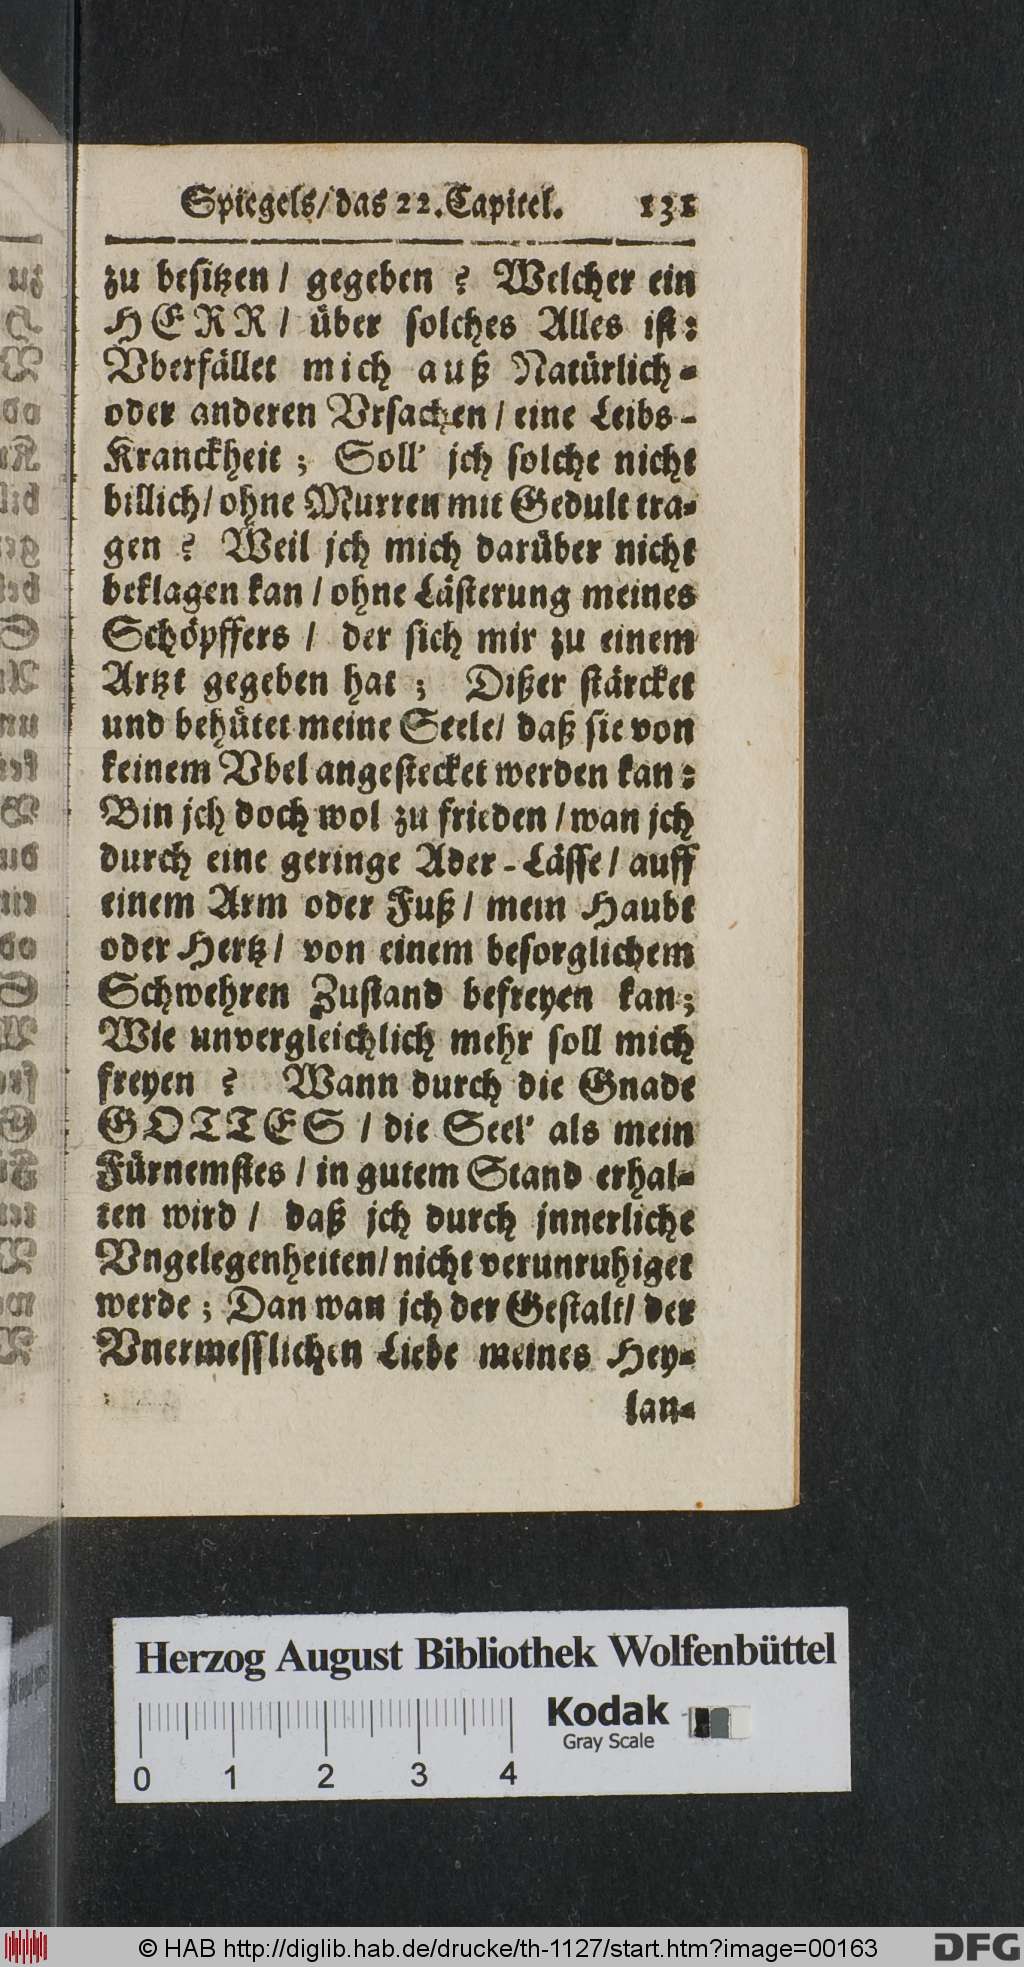 Spiegels/das 22.Capitel. 131
zu besitzen / gegeben ? Welcher ein
HERR / über solches Alles ist:
Vberfället mich auß Natürlich-
oder anderen Vrsachen / eine Leibs-
Kranckheit ; Soll' jch solche nicht
billich / ohne Murren mit Gedult tra-
gen ? Weil jch mich darüber nicht
beklagen kan / ohne Lästerung meines
Schöpffers / der sich mir zu einem
Artzt gegeben hat ; Dißer stärcket
und behütet meine Seele / daß sie von
keinem Vbel angestecket werden kan:
Bin jch doch wol zu frieden / wan jch
durch eine geringe Ader-Lässe / auff
einem Arm oder Fuß / mein Haubt
oder Hertz / von einem besorglichem
Schwehren Zustand befreyen kan;
Wie unvergleichlich mehr soll mich
freyen ? Wann durch die Gnade
GOTTES / die Seel' als mein
Fürnemstes / in gutem Stand erhal-
ten wird / daß jch durch jnnerliche
Vngelegenheiten / nicht verunruhiget
werde ; Dan wan jch der Gestalt / der
Vnermesslichen Liebe meines Hey-
lan-
Herzog August Bibliothek Wolfenbüttel
Kodak
Gray Scale
0 1 2 3 4
© HAB http://diglib.hab.de/drucke/th-1127/start.htm?image=00163
DFG